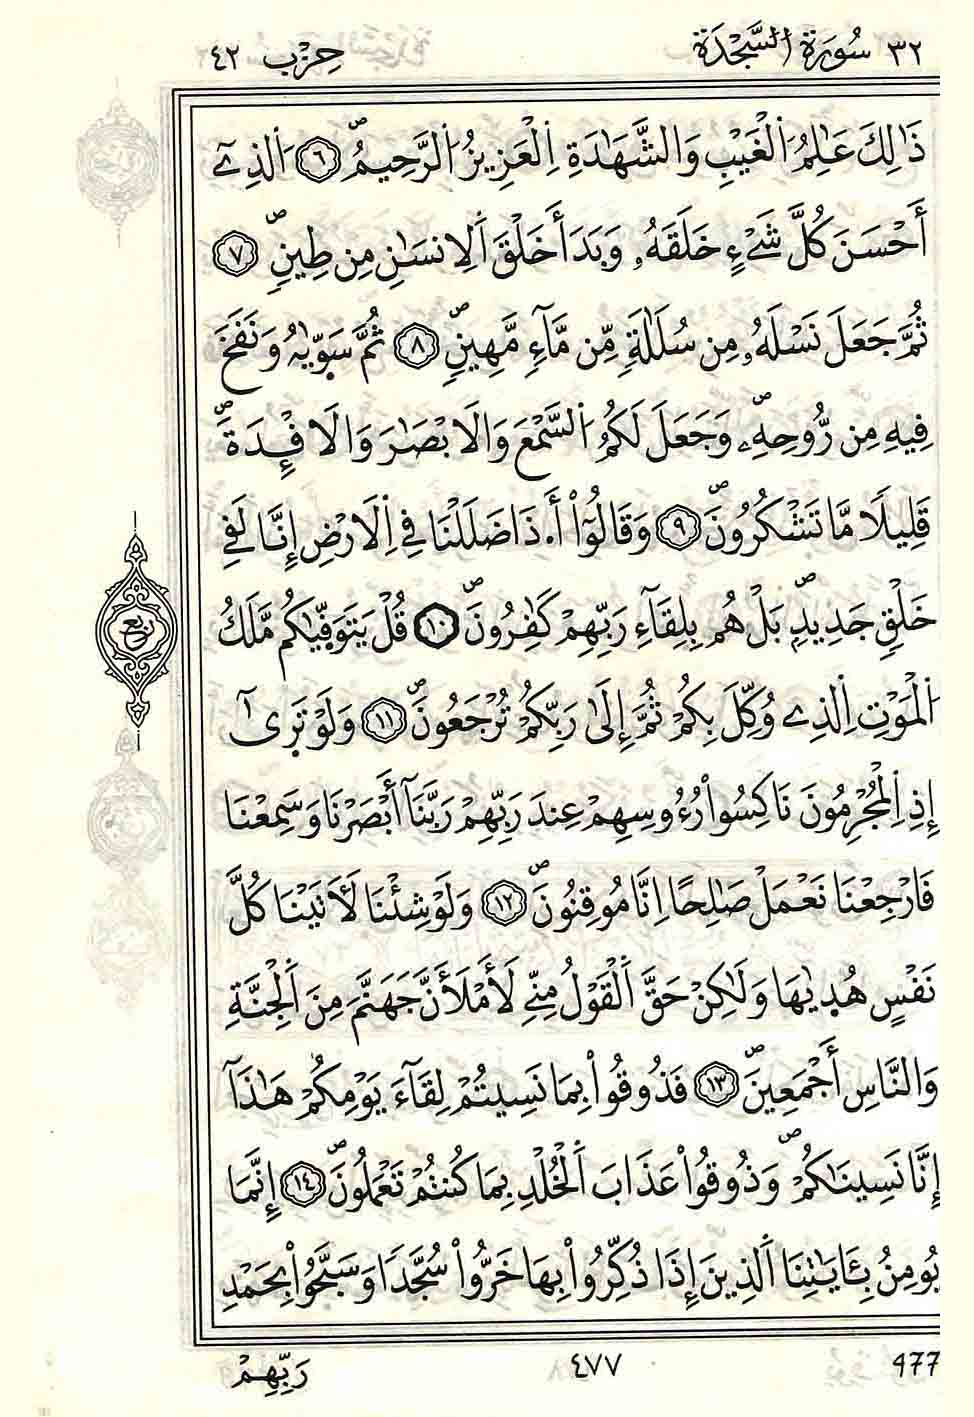 ٣٢ سُورَةُ السَّجْدَة حِزْب ٤٢
ذَٰلِكَ عَٰلِمُ اُ۬لْغَيْبِ وَالشَّهَٰدَةِ اِ۬لْعَزِيزُ اُ۬لرَّحِيمُۖ ٦ اُ۬لذِےٓ
أَحْسَنَ كُلَّ شَےْءٍ خَلَقَهُۥ وَبَدَأَ خَلْقَ اَ۬لِانسَٰنِ مِن طِينٖۖ ٧
ثُمَّ جَعَلَ نَسْلَهُۥ مِن سُلَٰلَةٖ مِّن مَّآءٖ مَّهِينٖۖ ٨ ثُمَّ سَوّ۪يٰهُ وَنَفَخَ
فِيهِ مِن رُّوحِهِۦۖ وَجَعَلَ لَكُمُ اُ۬لسَّمْعَ وَالَابْصَٰرَ وَالَافْـِٕدَةَۖ
قَلِيلاٗ مَّا تَشْكُرُونَۖ ٩ وَقَالُوٓاْ أَ.ذَا ضَلَلْنَا فِے اِ۬لَارْضِ إِنَّا لَفِے
خَلْقٖ جَدِيدِۢۖ بَلْ هُم بِلِقَآءِ رَبِّهِمْ كَٰفِرُونَۖ ١٠ قُلْ يَتَوَفّ۪يٰكُم مَّلَكُ
اُ۬لْمَوْتِ اِ۬لذِے وُكِّلَ بِكُمْ ثُمَّ إِلَىٰ رَبِّكُمْ تُرْجَعُونَۖ ١١ وَلَوْ تَر۪ىٰٓ
إِذِ اِ۬لْمُجْرِمُونَ نَاكِسُواْ رُءُوسِهِمْ عِندَ رَبِّهِمْ رَبَّنَآ أَبْصَرْنَا وَسَمِعْنَا
فَارْجِعْنَا نَعْمَلْ صَٰلِحًا اِنَّا مُوقِنُونَۖ ١٢ وَلَوْ شِئْنَا لَأٓتَيْنَا كُلَّ
نَفْسٍ هُد۪يٰهَا وَلَٰكِنْ حَقَّ اَ۬لْقَوْلُ مِنِّے لَأَمْلَأَنَّ جَهَنَّمَ مِنَ اَ۬لْجِنَّةِ
وَالنَّاسِ أَجْمَعِينَۖ ١٣ فَذُوقُواْ بِمَا نَسِيتُمْ لِقَآءَ يَوْمِكُمْ هَٰذَآ
إِنَّا نَسِينَٰكُمْۖ وَذُوقُواْ عَذَابَ اَ۬لْخُلْدِ بِمَا كُنتُمْ تَعْمَلُونَۖ ١٤ إِنَّمَا
يُومِنُ بِـَٔايَٰتِنَا اَ۬لذِينَ إِذَا ذُكِّرُواْ بِهَا خَرُّواْ سُجَّداٗ وَسَبَّحُواْ بِحَمْدِ
ربع
رَبِّهِمْ ٤٧٧ 477